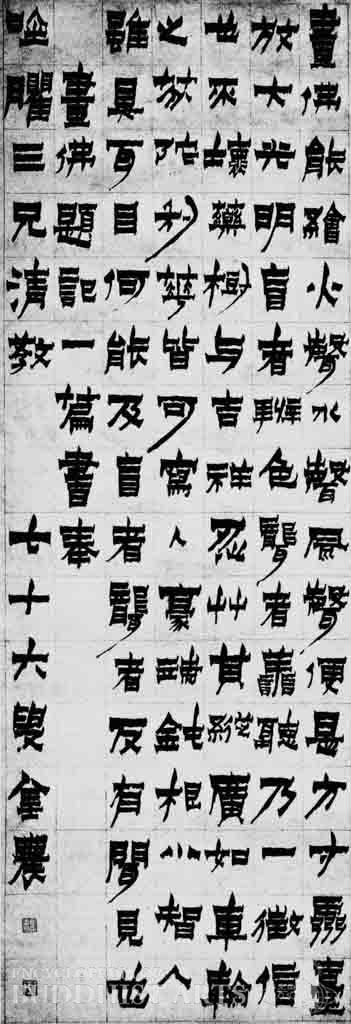 畫佛能繪火聲水聲風聲便是方寸靈臺
放大光明盲者色聾者聽乃一徵信
也不壞藥樹与吉祥忍艸其影廣如車輪
之芬陀利華皆可寫入豪端鈍根小智人
雖具百目何能及盲者聾者反有聞見也
畫佛題記一篇書奉
臞三兄清教 七十六叟金農
ENCYCLOPEDIA OF
BUDDHIST ARTS